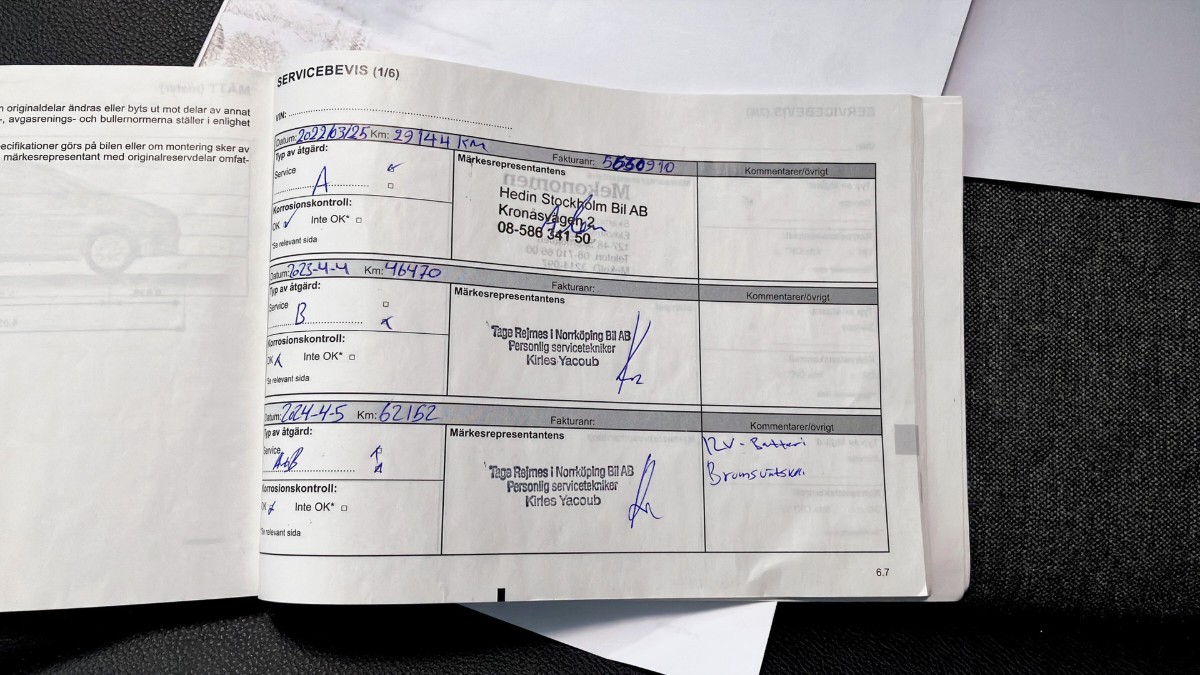 MÅTT (meter)
n originaldelar ändras eller byts ut mot delar av annat
-, avgasrenings- och bullernormerna ställer i enlighet
ecifikationer görs på bilen eller om montering sker av
märkesrepresentant med originalreservdelar omfat-
SERVICEBEVIS (1/6)
VIN:
Datum: 2022/03/25 Km: 29144 KM Fakturanr: 5630910
Typ av åtgärd:
Service
A
Korrosionskontroll:
OK Inte OK*
*Se relevant sida
Märkesrepresentantens
Hedin Stockholm Bil AB
Kronåsvägen 2
08-586 341 50
Kommentarer/övrigt
Datum: 2023-4-4 Km: 46470 Fakturanr:
Typ av åtgärd:
Service
B
Korrosionskontroll:
OK Inte OK*
*Se relevant sida
Märkesrepresentantens
Tage Rejmes i Norrköping Bil AB
Personlig servicetekniker
Kirles Yacoub
Kommentarer/övrigt
Datum: 2024-4-5 Km: 62152 Fakturanr:
Typ av åtgärd:
Service
A+B
Korrosionskontroll:
OK Inte OK*
*Se relevant sida
Märkesrepresentantens
Tage Rejmes i Norrköping Bil AB
Personlig servicetekniker
Kirles Yacoub
Kommentarer/övrigt
12V-Batteri
Bromsvätska.
6.7